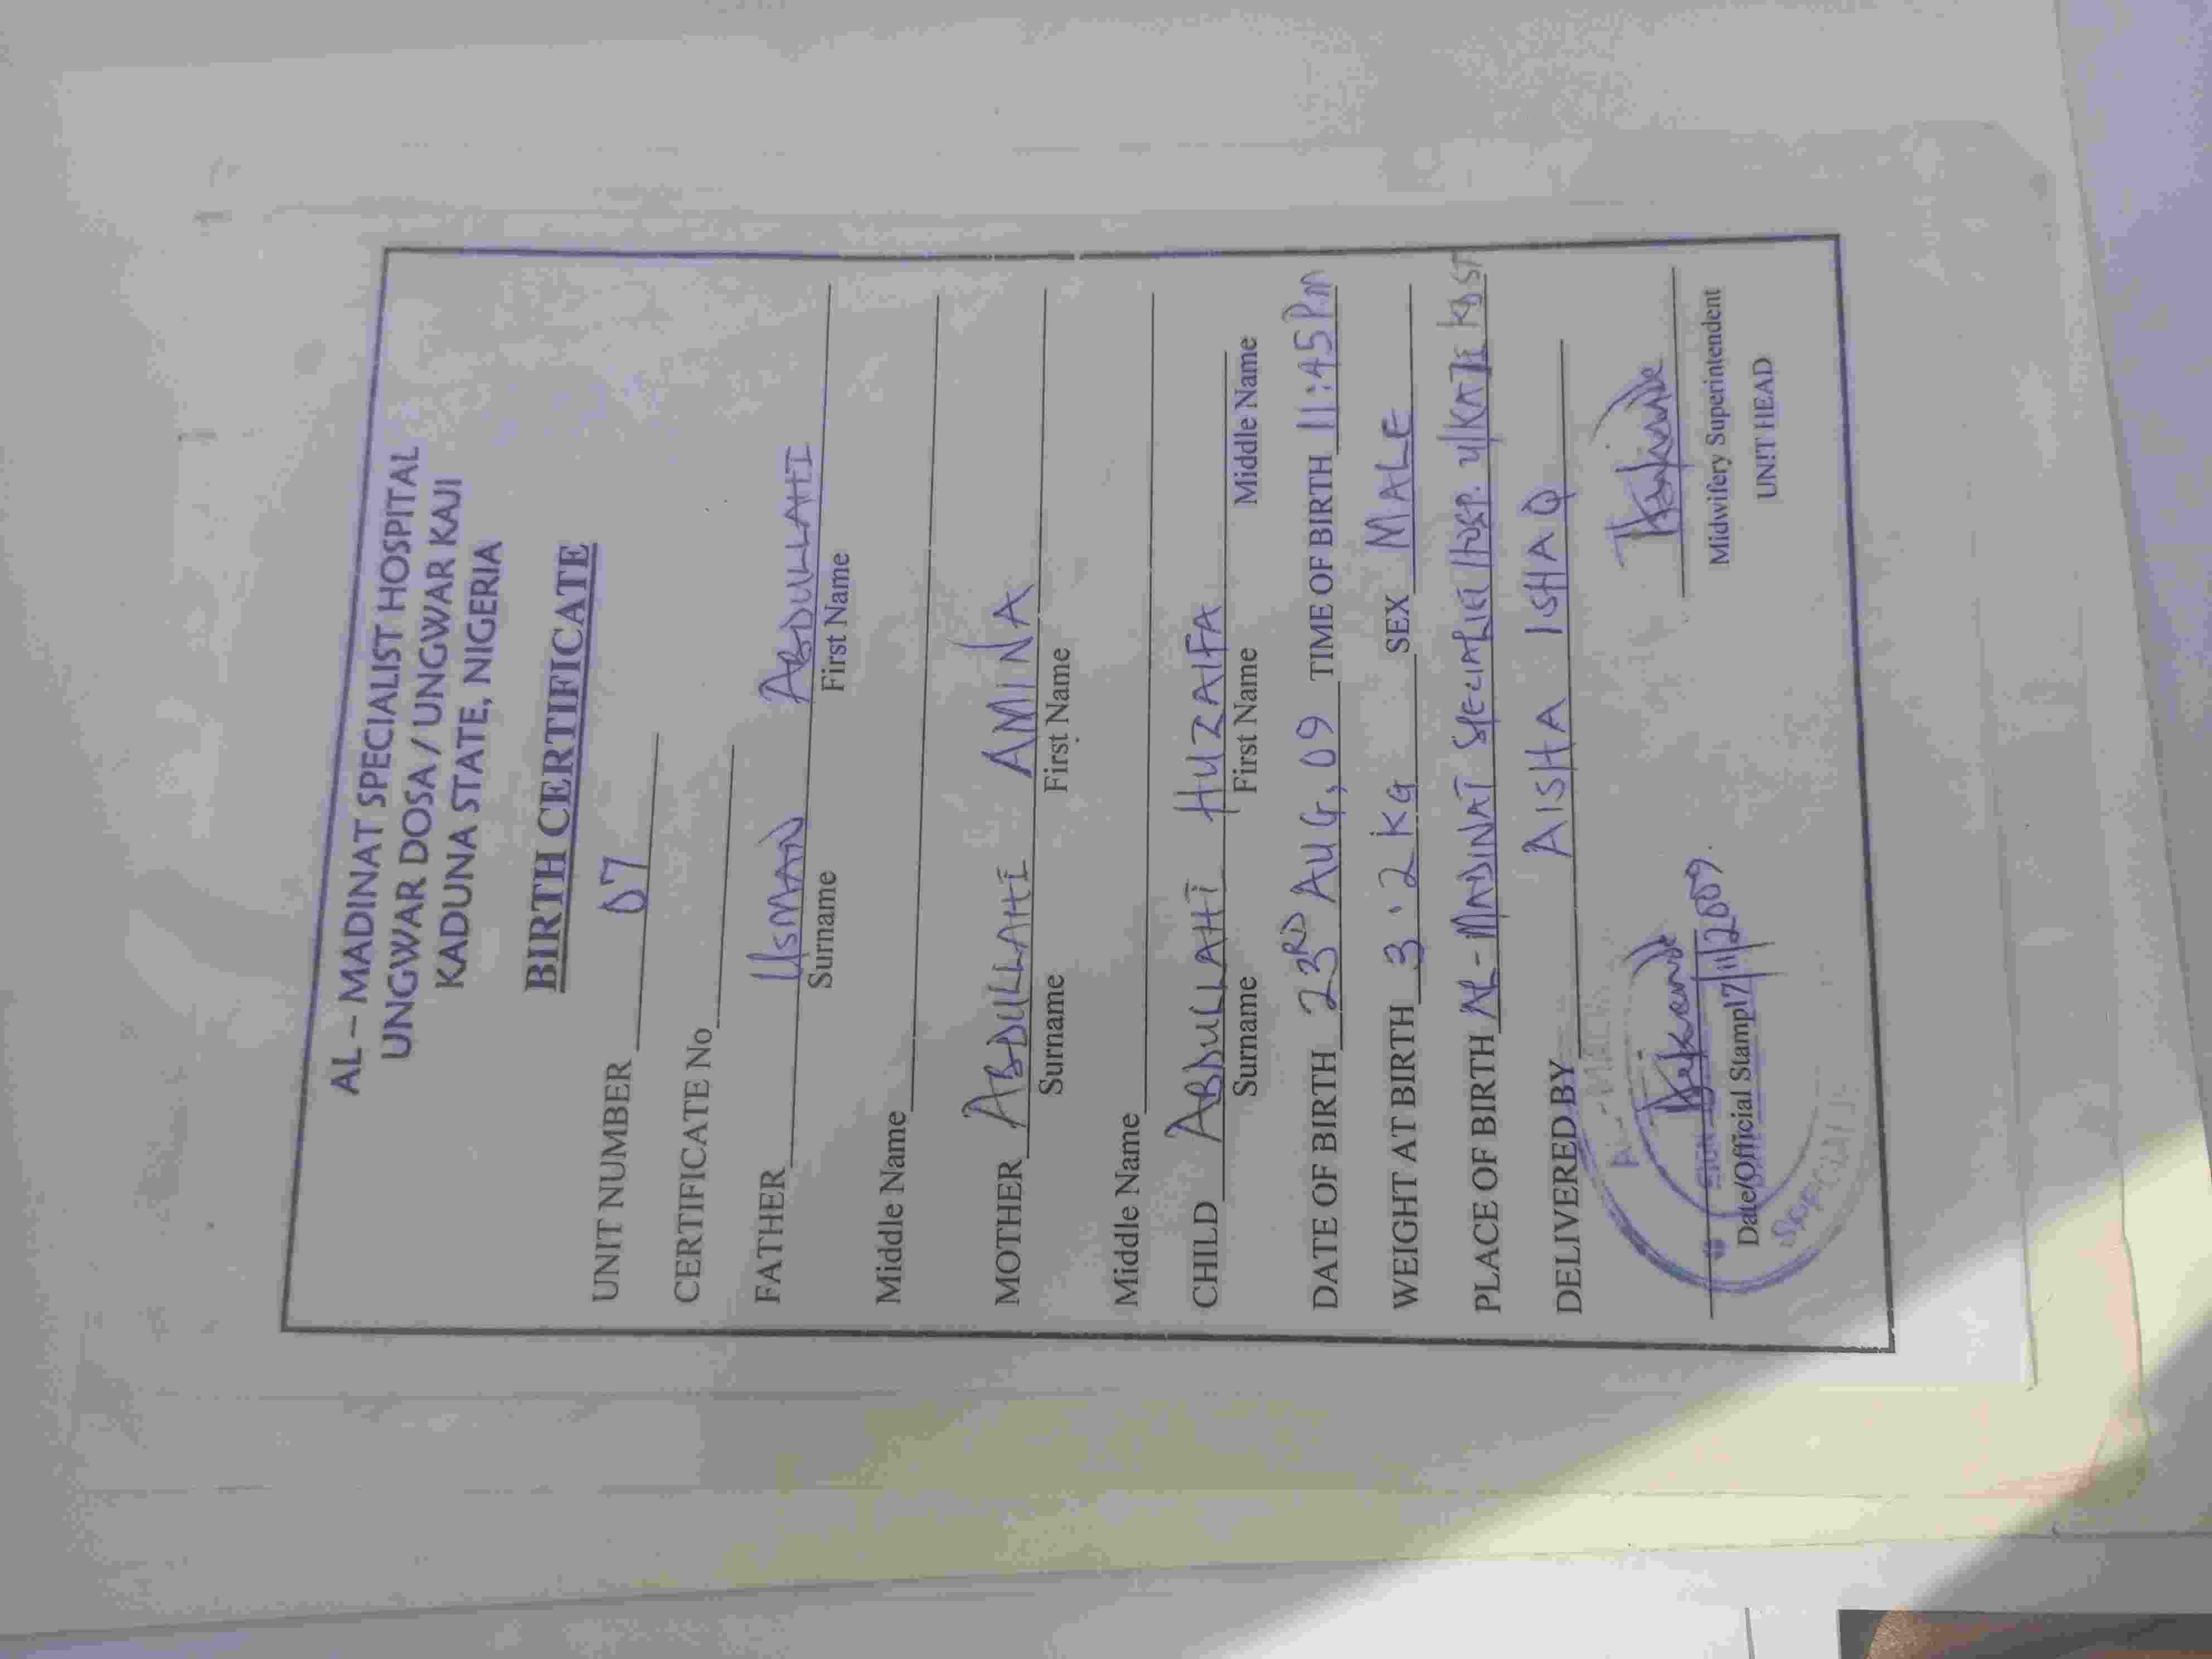 AL – MADINAT SPECIALIST HOSPITAL
UNGWAR DOSA / UNGWAR KAJI
KADUNA STATE, NIGERIA
BIRTH CERTIFICATE
UNIT NUMBER 07
CERTIFICATE No
FATHER USMAN ABDULLAHI
Surname First Name
Middle Name
MOTHER ABDULLAHI AMINA
Surname First Name
Middle Name
CHILD ABDULLAHI HUZAIFA
Surname First Name Middle Name
DATE OF BIRTH 23RD AUG, 09 TIME OF BIRTH 11:45PM
WEIGHT AT BIRTH 3.2 KG SEX MALE
PLACE OF BIRTH AL-MADINAT SPECIALIST HOSP. U/KAJI KDST
DELIVERED BY AISHA ISHAQ
Date/Official Stamp 17/11/2009.
Midwifery Superintendent
UNIT HEAD